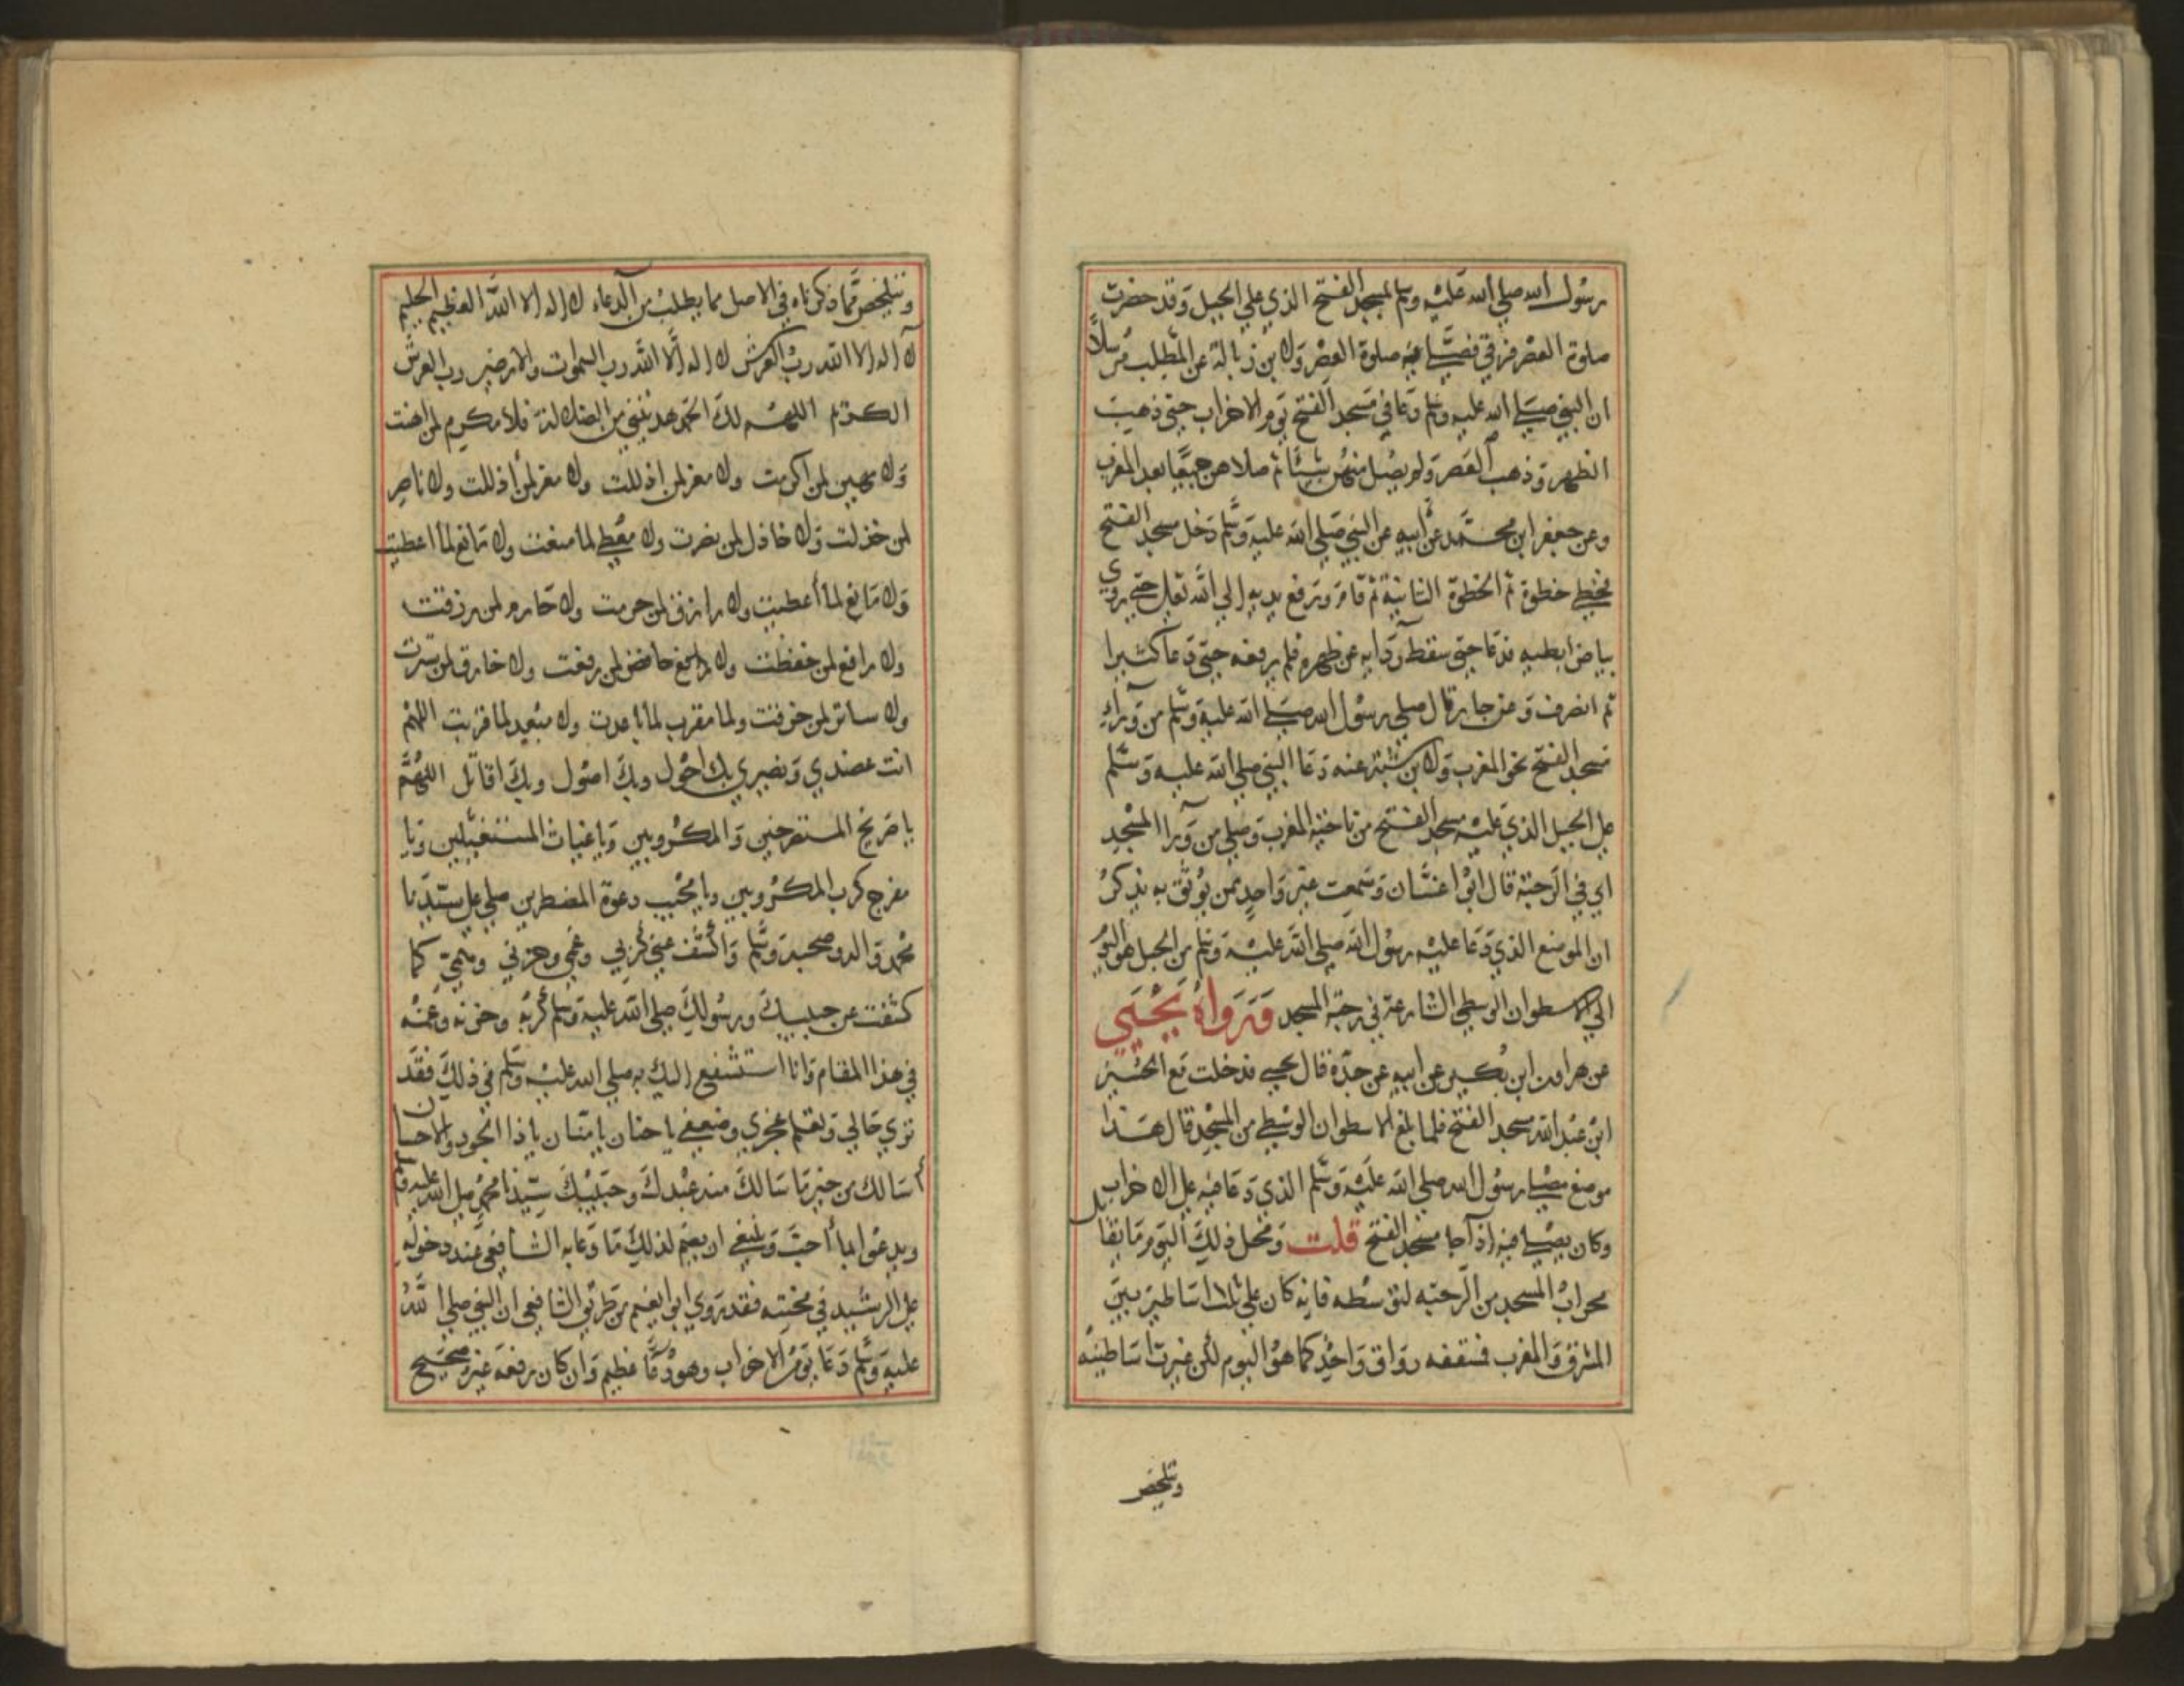 رسول الله صلي الله عليه وسلم لمسجد الفتح الذي علي الجبل وقد حضرت
صلوة العصر فرقي فصلي فيه صلوة العصر ولابن زبالة عن المطلب مرسلاً
ان النبي صلي الله عليه وسلم دعا في مسجد الفتح يوم الاحزاب حتى ذهبت
الظهر وذهب العصر ولم يصل منهن شيئا ثم صلاهن جميعا بعد المغرب
وعن جعفر ابن محمد عن أبيه عن النبي صلي الله عليه وسلم دخل مسجد الفتح
فخطي خطوة ثم الخطوة الثانية ثم قام ورفع يديه إلى الله تعالى حتى روي
بياض ابطيه فدعا حتى سقط رداءه عن ظهره فلم يرفعه حتى دعا كثيرا
ثم انصرف وعن جابر قال صلي رسول الله صلي الله عليه وسلم من وراء
مسجد الفتح نحو المغرب ولابن شبة عنه دعا النبي صلي الله عليه وسلم
على الجبل الذي عليه مسجد الفتح من ناحية المغرب وصلي من ورا المسجد
اي في الرحبة قال ابو غسان وسمعت غير واحد ممن يوثق به يذكر
ان الموضع الذي دعا عليه رسول الله صلى الله عليه وسلم من الجبل هو اليوم
الي الاسطوان الوسطى الشارعة في رحبة المسجد ورواه يحيى
عن هرون ابن بكير عن ابيه عن جده قال يحيى فدخلت مع الحسين
ابن عبد الله مسجد الفتح فلما بلغ الاسطوان الوسطي من المسجد قال هذا
موضع مصلي رسول الله صلي الله عليه وسلم الذي دعا فيه على الاحزاب
وكان يصلي فيه إذا جا مسجد الفتح قلت ومحل ذلك اليوم ما يقابل
محراب المسجد من الرحبة لتوسطه فانه كان علي ثلاث اساطين بين
المشرق والمغرب فسقفه رواق واحد كما هو اليوم لكن غيرت اساطينه
وتلخص
وتلخص مما ذكرناه في الاصل مما يطلب من الدعاء لا إله إلا الله العظيم الحليم
لا إله إلا الله رب العرش لا إله إلا الله رب السموات والارضين رب العرش
الكريم اللهم لك الحمد هديتني من الضلالة فلا مكرم لمن اهنت
ولا مهين لمن اكرمت ولا معز لمن اذللت ولا معز لمن أذللت ولا ناصر
لمن خذلت ولا خاذل لمن نصرت ولا معطي لما منعت ولا مانع لما اعطيت
ولا مانع لما أعطيت ولا رازق لمن حرمت ولا حارم لمن رزقت
ولا رافع لمن خفظت ولا خافض لمن رفعت ولا خارق لمن سترت
ولا ساتر لمن خرقت ولا مقرب لما باعدت ولا مبعد لما قربت اللهم
انت عضدي ونصيري بك احول وبك اصول وبك اقاتل اللهم
يا صريخ المستصرخين والمكروبين ويا غياث المستغيثين ويا
مفرج كرب المكروبين ويا مجيب دعوة المضطرين صلي على سيدنا
محمد واله وصحبه وسلم واكشف عني كربي وغمي وحزني وهمي كما
كشفت عن حبيبك ورسولك صلي الله عليه وسلم كربه وحزنه وغمه
في هذا المقام وانا استشفع إليك به صلي الله عليه وسلم في ذلك فقد
تري حالي وتعلم عجزي وضعفي يا حنان يا منان يا ذا الجود والاحسان
اسالك من خير ما سالك منه عبدك وحبيبك سيدنا محمد صلى الله عليه وسلم
ويدعو بما أحب وينبغي ان يضم لذلك ما دعا به الشافعي عند دخوله
على الرشيد في محنته فقد روي ابو نعيم من طريق الشافعي ان النبي صلي الله
عليه وسلم دعا به يوم الاحزاب وهو دعا عظيم وان كان رفعه غير صحيح